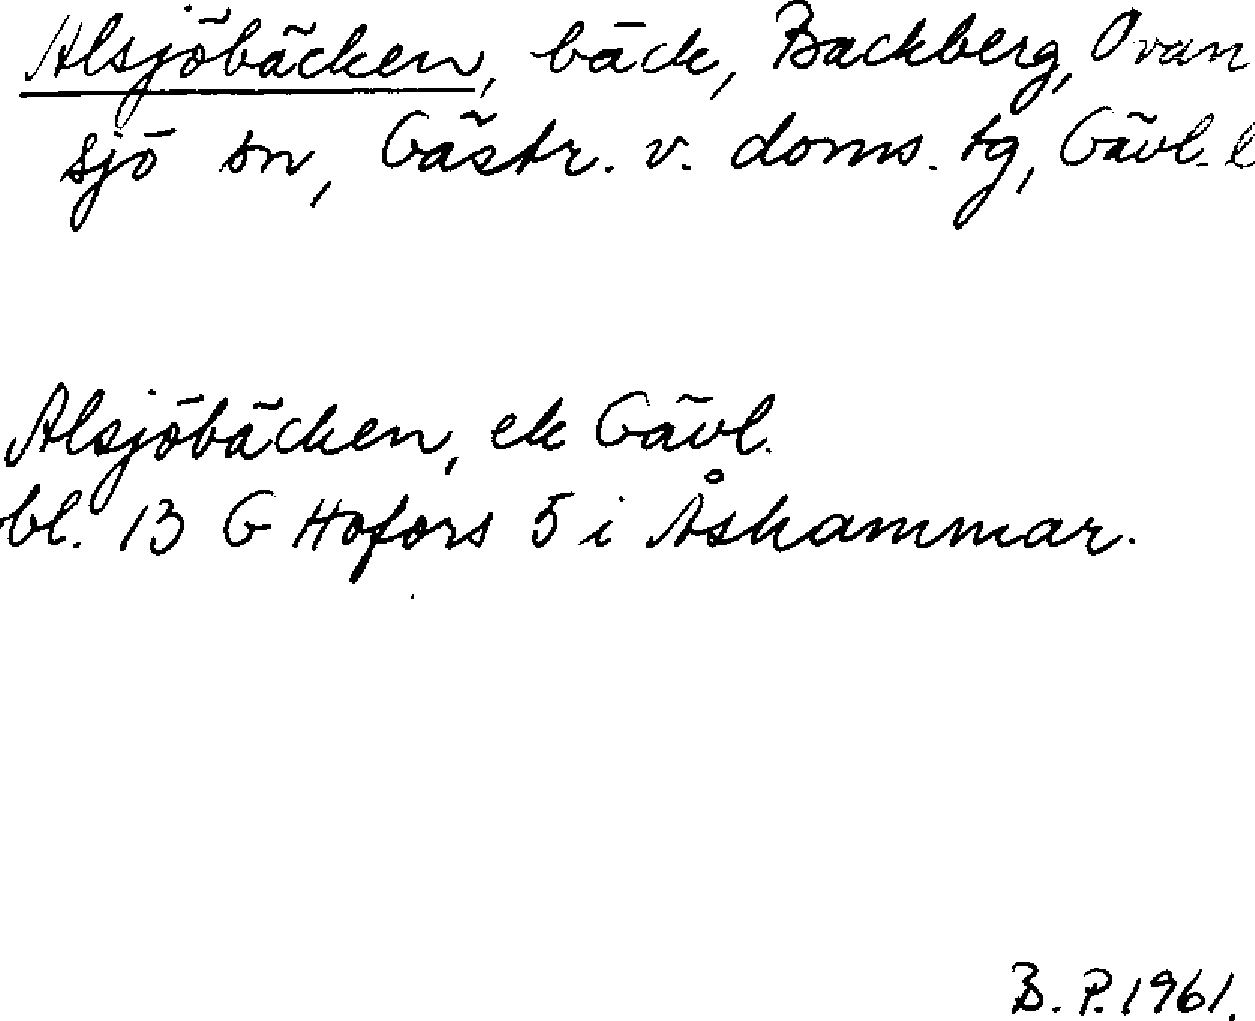 Alsjöbäcken, bäck, Backberg, Ovan
sjö sn, Gästr. v. doms. tg, Gävl. l
Alsjöbäcken, ek Gävl.
bl. 13 G Hofors 5 i Åshammar.
B. P. 1961.